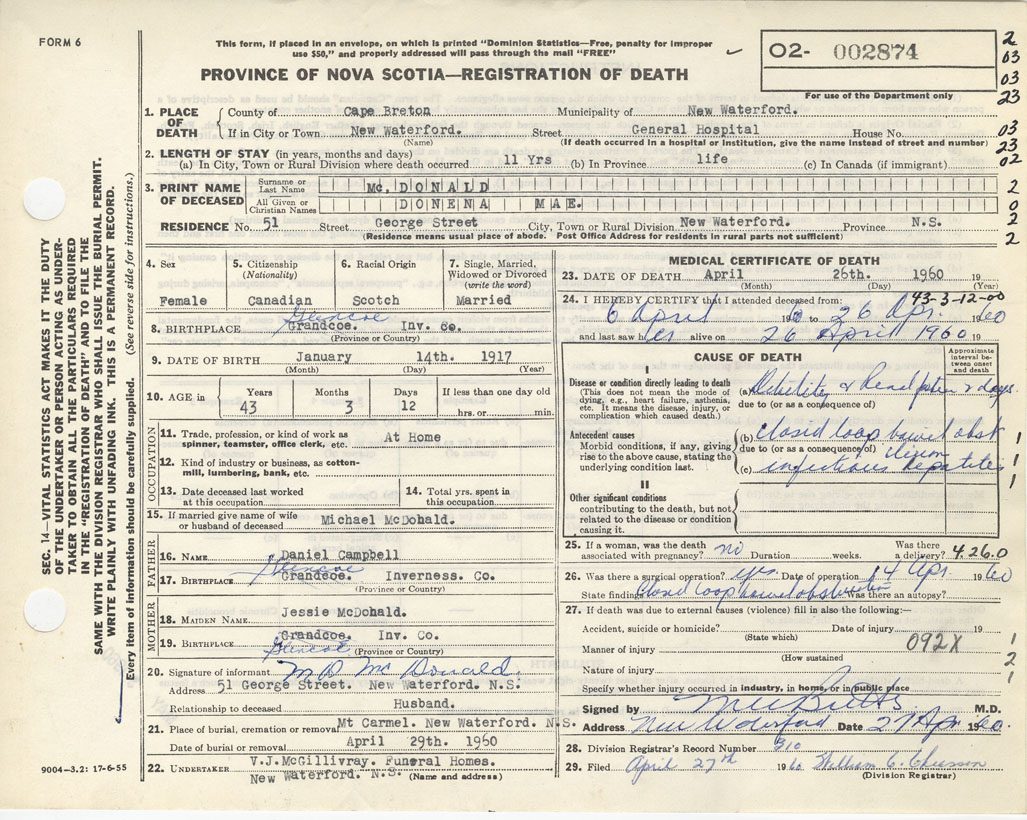 FORM 6
This form, if placed in an envelope, on which is printed "Dominion Statistics—Free, penalty for improper
use $50," and properly addressed will pass through the mail "FREE"
PROVINCE OF NOVA SCOTIA—REGISTRATION OF DEATH
O2- 002874
For use of the Department only
2
03
03
23
03
23
02
2
0
2
2
SEC. 14—VITAL STATISTICS ACT MAKES IT THE DUTY
OF THE UNDERTAKER OR PERSON ACTING AS UNDER-
TAKER TO OBTAIN ALL THE PARTICULARS REQUIRED
IN THE "REGISTRATION OF DEATH" AND TO FILE THE
SAME WITH THE DIVISION REGISTRAR WHO SHALL ISSUE THE BURIAL PERMIT.
WRITE PLAINLY WITH UNFADING INK. THIS IS A PERMANENT RECORD.
Every item of information should be carefully supplied. (See reverse side for instructions.)
1. PLACE OF DEATH
County of Cape Breton Municipality of New Waterford.
If in City or Town New Waterford. Street General Hospital House No.
(Name) (If death occurred in a hospital or institution, give the name instead of street and number)
2. LENGTH OF STAY (in years, months and days)
(a) In City, Town or Rural Division where death occurred 11 Yrs (b) In Province life (c) In Canada (if immigrant)
3. PRINT NAME OF DECEASED
Surname or Last Name Mc.DONALD
All Given or Christian Names DONENA MAE.
RESIDENCE No. 51 Street George Street City, Town or Rural Division New Waterford. Province N.S.
(Residence means usual place of abode. Post Office Address for residents in rural parts not sufficient)
4. Sex
Female
5. Citizenship
(Nationality)
Canadian
6. Racial Origin
Scotch
7. Single, Married,
Widowed or Divorced
(write the word)
Married
Glencoe
8. BIRTHPLACE Grandcoe. Inv. Co.
(Province or Country)
9. DATE OF BIRTH January 14th. 1917
(Month) (Day) (Year)
10. AGE in
Years Months Days If less than one day old
43 3 12 hrs. or min.
OCCUPATION
11. Trade, profession, or kind of work as
spinner, teamster, office clerk, etc. At Home
12. Kind of industry or business, as cotton-
mill, lumbering, bank, etc.
13. Date deceased last worked
at this occupation
14. Total yrs. spent in
this occupation
15. If married give name of wife
or husband of deceased Michael McDohald.
FATHER
16. NAME Daniel Campbell
Glencoe
17. BIRTHPLACE Grandcoe. Inverness. Co.
(Province or Country)
MOTHER
18. MAIDEN NAME Jessie McDohald.
19. BIRTHPLACE Grandcoe. Inv. Co.
Glencoe (Province or Country)
20. Signature of informant M D McDonald
Address 51 George Street. New Waterford. N.S.
Relationship to deceased Husband.
21. Place of burial, cremation or removal Mt Carmel. New Waterford. N.S.
Date of burial or removal April 29th. 1960
22. UNDERTAKER V.J.McGillivray. Funeral Homes.
New Waterford. N.S. (Name and address)
9004-3.2: 17-6-55
MEDICAL CERTIFICATE OF DEATH
23. DATE OF DEATH April 26th. 1960 19
(Month) (Day) (Year)
24. I HEREBY CERTIFY that I attended deceased from: 43-3-12-00
6 April 196 to 26 Apr. 1960
and last saw her alive on 26 April 1960 19
CAUSE OF DEATH
Approximate
interval be-
tween onset
and death
I
Disease or condition directly leading to death
(This does not mean the mode of
dying, e.g., heart failure, asthenia,
etc. It means the disease, injury, or
complication which caused death.)
(a) & Renal 2 days.
due to (or as a consequence of)
Antecedent causes
Morbid conditions, if any, giving
rise to the above cause, stating the
underlying condition last.
(b) closed loop bowel obst
due to (or as a consequence of)
(c) infectious hepatitis
1
1
1
II
Other significant conditions
contributing to the death, but not
related to the disease or condition
causing it.
25. If a woman, was the death
associated with pregnancy? no Duration weeks. Was there
a delivery? 4.26.0
26. Was there a surgical operation? yes. Date of operation 14 Apr. 1960
State findings Closed loop bowel obstruction Was there an autopsy?
27. If death was due to external causes (violence) fill in also the following:—
Accident, suicide or homicide? Date of injury 19
(State which)
Manner of injury 092X
(How sustained
Nature of injury
1
2
1
Specify whether injury occurred in industry, in home, or in public place
Signed by M.D.
Address New Waterford Date 27 Apr 1960.
28. Division Registrar's Record Number 910
29. Filed April 27th 1960 William C.
(Division Registrar)